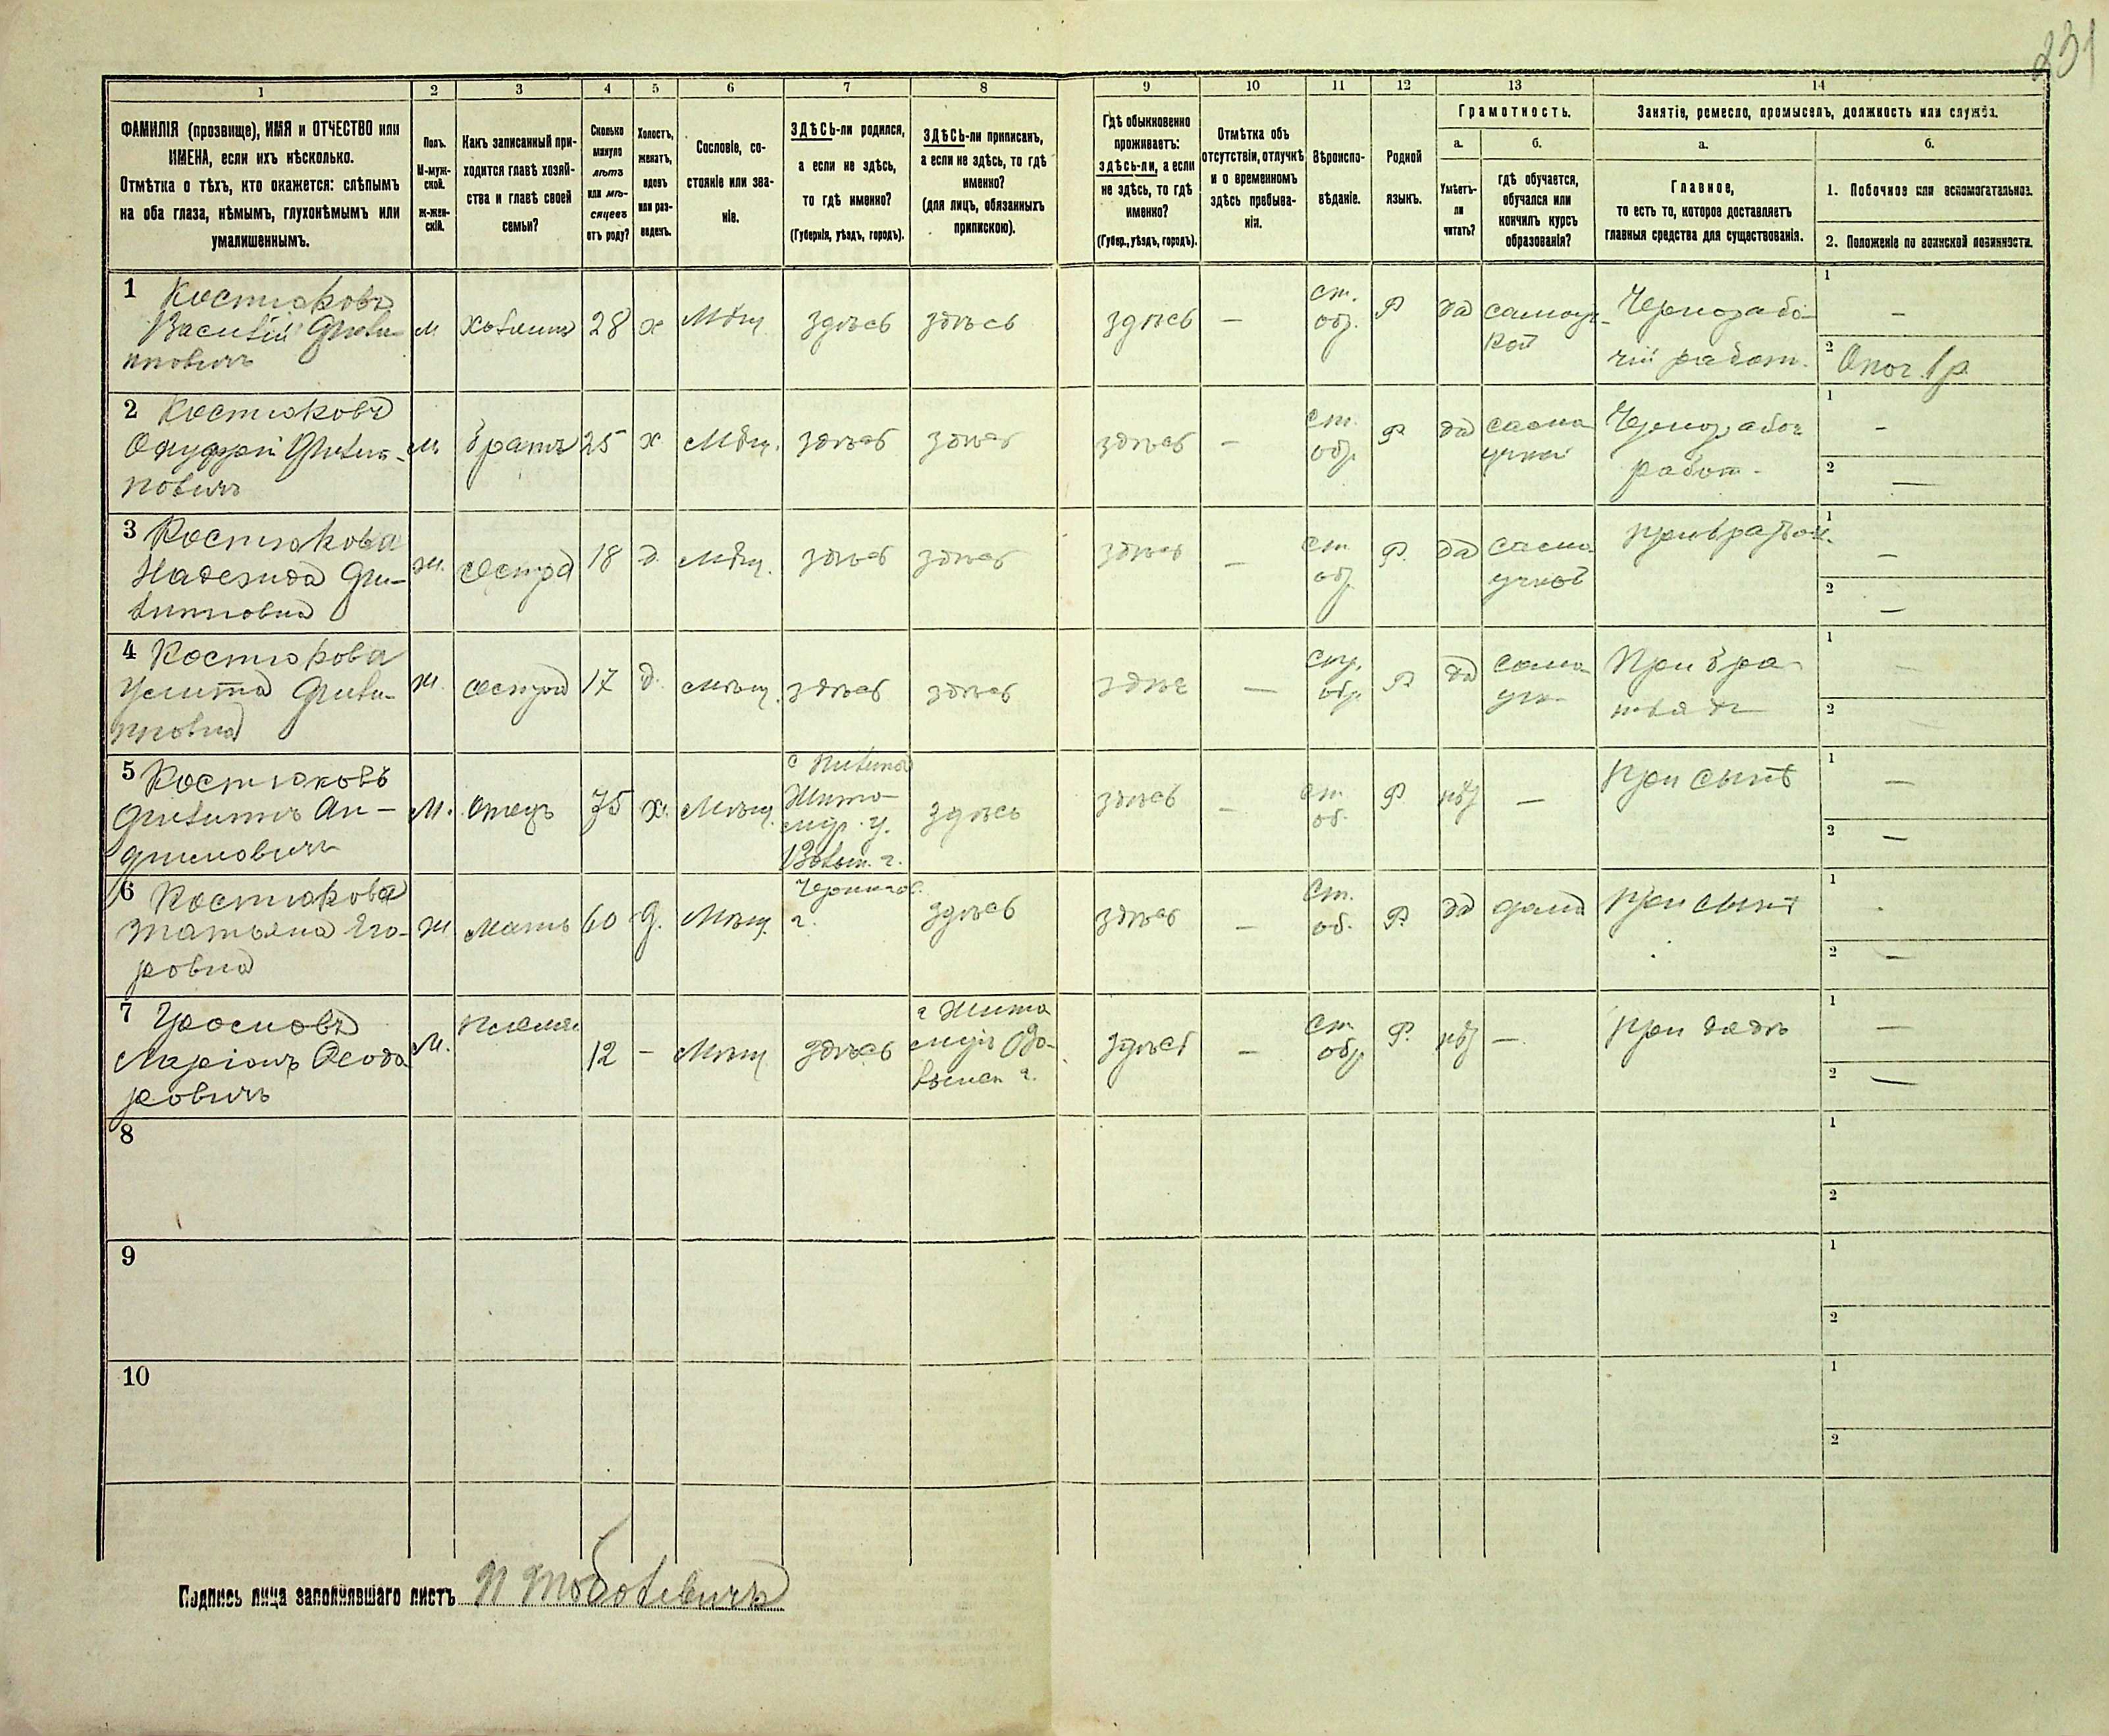 231
1 2 3 4 5 6 7 8 9 10 11 12 13 14
ФАМИЛІЯ (прозвище), ИМЯ и ОТЧЕСТВО или
ИМЕНА, если ихъ нѣсколько.
Отмѣтка о тѣхъ, кто окажется: слѣпымъ
на оба глаза, нѣмымъ, глухонѣмымъ или
умалишеннымъ.
Полъ.
М-муж-
ской.
Ж-жен-
скій.
Какъ записанный при-
ходится главѣ хозяй-
ства и главѣ своей
семьи?
Сколько
минуло
лѣтъ
или мѣ-
сяцевъ
отъ роду?
Холостъ,
женатъ,
вдовъ
или раз-
веденъ.
Сословіе, со-
стояніе или зва-
ніе.
ЗДѢСЬ-ли родился,
а если не здѣсь,
то гдѣ именно?
(Губернія, уѣздъ, городъ).
ЗДѢСЬ-ли приписанъ,
а если не здѣсь, то гдѣ
именно?
(для лицъ, обязанныхъ
припискою).
Гдѣ обыкновенно
проживаетъ:
здѣсь-ли, а если
не здѣсь, то гдѣ
именно?
(Губер., уѣздъ, городъ).
Отмѣтка объ
отсутствіи, отлучкѣ
и о временномъ
здѣсь пребыва-
ніи.
Вѣроиспо-
вѣданіе.
Родной
языкъ.
Грамотность.
а.
Умѣетъ-
ли
читать?
б.
гдѣ обучается,
обучался или
кончилъ курсъ
образованія?
Занятіе, ремесло, промыселъ, должность или служба.
а.
Главное,
то есть то, которое доставляетъ
главныя средства для существованія.
б.
1. Побочное или вспомогательное.
2. Положеніе по воинской повинности.
1 Костюковъ
Василій Фили-
пповичъ
М хозяинъ 28 х Мѣщ. здѣсь здѣсь здѣсь —
ст.
обр.
Р да самоуч-
кой
Чернорабо-
чій работ.
1 —
2 Опол. 1 р.
2 Костюковъ
Онуфрій Филип-
повичъ
М. братъ 25 х Мѣщ. здѣсь здѣсь здѣсь —
ст.
обр.
Р да само
учкой
Чернорабоч
работ.
1 —
2 —
3 Костюкова
Надежда Фи-
липповна
Ж. сестра 18 д. Мѣщ. здѣсь здѣсь здѣсь —
ст.
обр.
Р. да само
учкой
1 —
2 —
4 Костюкова
Филип-
повна
Ж. сестра 17 д. мѣщ. здѣсь здѣсь —
обр.
Р да само
уч
При бра-
тьяхъ
1 —
2
5 Костюковъ
Филиппъ Ан-
М. Отецъ 75 х. Мѣщ.
Жито-
мир. у.
Волын. г.
здѣсь здѣсь —
ст.
об.
Р нѣт —
При сынѣ
1 —
2 —
6 Костюкова
Татьяна Его-
ровна
Ж Мать 60 Мѣщ.
Чернигов.
г.
здѣсь здѣсь —
Ст.
об.
Р. да дома
При сынѣ
1
2 —
7
Маріонъ Ѳеодо
ровичъ
М. племян. 12 — Мѣщ здѣсь
г Жито
миръ
г.
здѣсь —
Ст.
обр.
Р. нѣт —
При дядѣ
1 —
2 —
8
1
2
9
1
2
10
1
2
Подпись лица заполнявшаго листъ